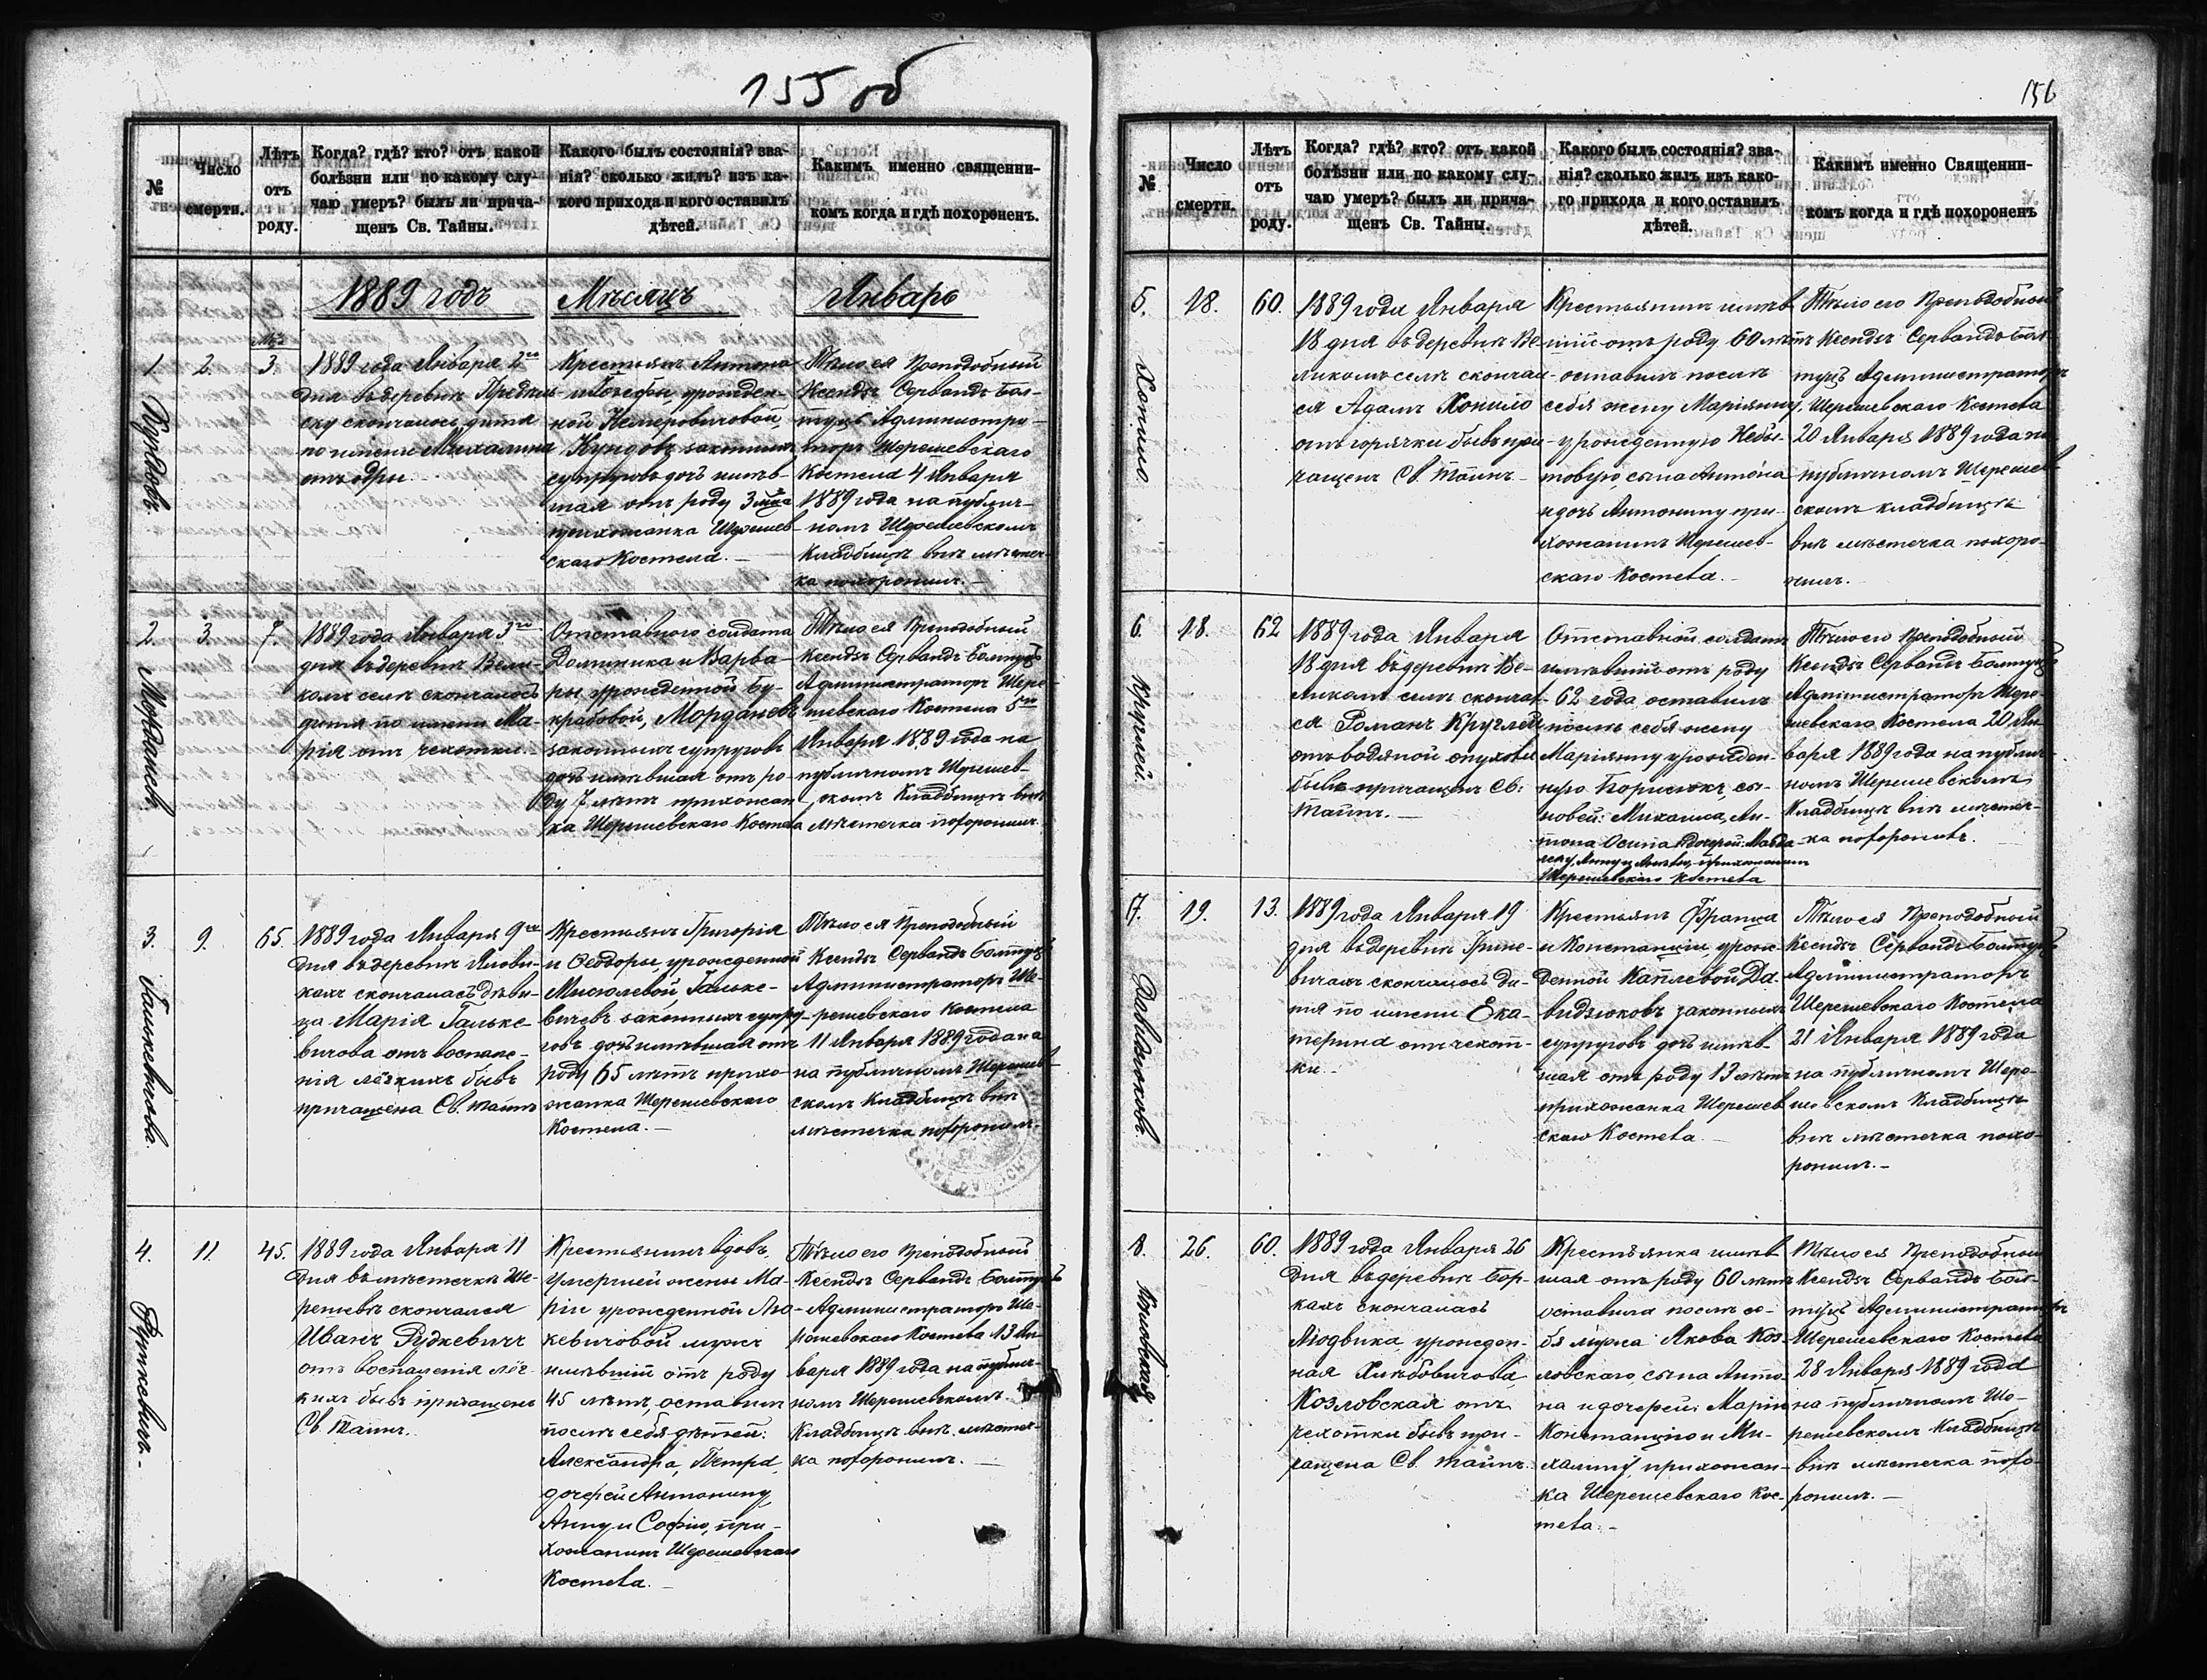 155 об
№
Число
смерти.
Лѣтъ
отъ
роду.
Когда? гдѣ? кто? отъ какой
болѣзни или по какому слу-
чаю умеръ? былъ ли прича-
щенъ Св. Тайны.
Какого былъ состоянія? зва-
нія? сколько жилъ? изъ ка-
кого прихода и кого оставилъ
дѣтей.
Какимъ именно священни-
комъ когда и гдѣ похороненъ.
1889 годъ Мѣсяцъ Январь
1.
2
3.
1889 года Января 2го
дня въ деревнѣ
скончалось дитя
по имени Михалина
отъ
Крестьянъ Антона
и урожден-
ной
законныхъ
супруговъ дочь имѣв-
шая отъ роду 3 мѣс
прихожанка Шерешев-
скаго Костела. —
Тѣло ея Преподобный
Ксендзъ Сервандъ Бол-
туць Администра-
торъ Шерешевскаго
Костела 4 Января
1889 года на публич-
номъ Шерешевскомъ
Кладбищѣ внѣ мѣстеч-
ка похоронилъ. —
2.
3.
7.
1889 года Января 3го
дня въ деревнѣ Вели-
комъ селѣ скончалось
дитя по имени Ма-
рія отъ чахотки.
Отставного солдата
Доминика и Варва-
ры, урожденной Бу-
крабовой, Морданевъ
законныхъ супруговъ
дочь имѣвшая отъ ро-
ду 7 лѣтъ прихожан-
ка Шерешевскаго Костела
Тѣло ея Преподобный
Ксендзъ Сервандъ Болтуць
Администраторъ Шере-
шевскаго Костела 5го
Января 1889 года на
публичномъ Шерешев-
скомъ Кладбищѣ внѣ
мѣстечка похоронилъ.
3.
Галькевичова.
9.
65.
1889 года Января 9го
дня въ деревнѣ Яльви-
кахъ скончалась дѣви-
ца Марія Галько-
вичова отъ воспале-
нія лёгкихъ бывъ
причащена Св. таинъ
Крестьянъ Григорія
и Ѳеодоры, урожденной
Мисюлевой, Галько-
вичевъ законныхъ супру-
говъ дочь имѣвшая отъ
роду 65 лѣтъ прихо-
жанка Шерешевскаго
Костела. —
Тѣло ея Преподобный
Ксендзъ Сервандъ Болтуць
Администраторъ Ше-
решевскаго Костела
11 Января 1889 года на
на публичномъ Шерешев-
скомъ Кладбищѣ внѣ
мѣстечка похоронилъ.
4.
Рудкевичъ.
11.
45.
1889 года Января 11
дня въ мѣстечкѣ Ше-
решевѣ скончался
Иванъ Рудкевичъ
отъ воспаленія лёг-
кихъ бывъ причащенъ
Св. Таинъ.
Крестьянинъ вдовъ,
умершей жены Ма-
ріи урожденной Лю-
кевичовой мужъ
имѣвшій отъ роду
45 лѣтъ, оставилъ
послѣ себя дѣтей:
Александра, Петра,
дочерей Антонину,
Анну и Софію, при-
хожанинъ Шерешевскаго
Костела. —
Тѣло его Преподобный
Ксендзъ Сервандъ Болтуць
Администраторъ Ше-
решевскаго Костела 13 Ян-
варя 1889 года на публич-
номъ Шерешевскомъ
Кладбищѣ внѣ мѣстеч-
ка похоронилъ. —
156
№
Число
смерти.
Лѣтъ
отъ
роду.
Когда? гдѣ? кто? отъ какой
болѣзни или по какому слу-
чаю умеръ? былъ ли прича-
щенъ Св. Тайны.
Какого былъ состоянія? зва-
нія? сколько жилъ изъ како-
го прихода и кого оставилъ
дѣтей.
Какимъ именно Священни-
комъ когда и гдѣ похороненъ
5.
Хопило
18.
60.
1889 года Января
18 дня въ деревнѣ Ве-
ликомъ селѣ скончал-
ся Адамъ Хопило
отъ горячки бывъ при-
чащенъ Св. Таинъ.
Крестьянинъ имѣв-
шій отъ роду 60 лѣтъ
оставилъ послѣ
себя жену Маріянну,
урожденную
сына Антона
и дочь Антонину при-
хожанинъ Шерешев-
скаго Костела. —
Тѣло его Преподобный
Ксендзъ Сервандъ Бол-
туць Администраторъ
Шерешевскаго Костела
20 Января 1889 года на
публичномъ Шерешев-
скомъ кладбищѣ
внѣ мѣстечка похоро-
нилъ. —
6.
Круглей.
18.
62
1889 года Января
18 дня въ деревнѣ Ве-
ликомъ селѣ скончал-
ся Романъ Круглей
отъ водяной опухоли
бывъ причащенъ Св.
Таинъ. —
Отставной солдатъ
имѣвшій отъ роду
62 года, оставилъ
послѣ себя жену
Маріянну урожден-
ную Борисюкъ, сы-
новей: Михаила, Ан-
тона Осипа и дочерей: Магда-
лену, Анну и прихожанинъ
Шерешевскаго Костела
Тѣло его Преподобный
Ксендзъ Сервандъ Болтуць
Администраторъ Шере-
шевскаго Костела 20 Ян-
варя 1889 года на публич-
номъ Шерешевскомъ
Кладбищѣ внѣ мѣстеч-
ка похоронилъ.
7.
Давидзюковъ.
19.
13.
1889 года Января 19
дня въ деревнѣ Грине-
вичахъ скончалось ди-
тя по имени Ека-
терина отъ чахот-
ки. —
Крестьянъ Франца
и Констанціи, урож-
денной Каплевой Да-
видзюковъ законныхъ
супруговъ дочь имѣв-
шая отъ роду 13 лѣтъ
прихожанка Шерешев-
скаго Костела. —
Тѣло ея Преподобный
Ксендзъ Сервандъ Болтуць
Администраторъ
Шерешевскаго Костела
21 Января 1889 года
на публичномъ Шере-
шевскомъ Кладбищѣ
внѣ мѣстечка похо-
ронилъ. —
8.
Козловская.
26.
60.
1889 года Января 26
дня въ деревнѣ Бор-
кахъ скончалась
Людвика, урожден-
ная Хлѣбовичова,
Козловская отъ
чахотки бывъ при-
чащена Св. таинъ.
Крестьянка имѣв-
шая отъ роду 60 лѣтъ
оставила послѣ се-
бя мужа Якова Коз-
ловскаго, сына Анто-
на и дочерей: Марію
Констанцію и Ми-
халину, прихожан-
ка Шерешевскаго Кос-
тела. —
Тѣло ея Преподобный
Ксендзъ Сервандъ Бол-
туць Администраторъ
Шерешевскаго Костела
28 Января 1889 года
на публичномъ Ше-
решевскомъ Кладбищѣ
внѣ мѣстечка похо-
ронилъ. —